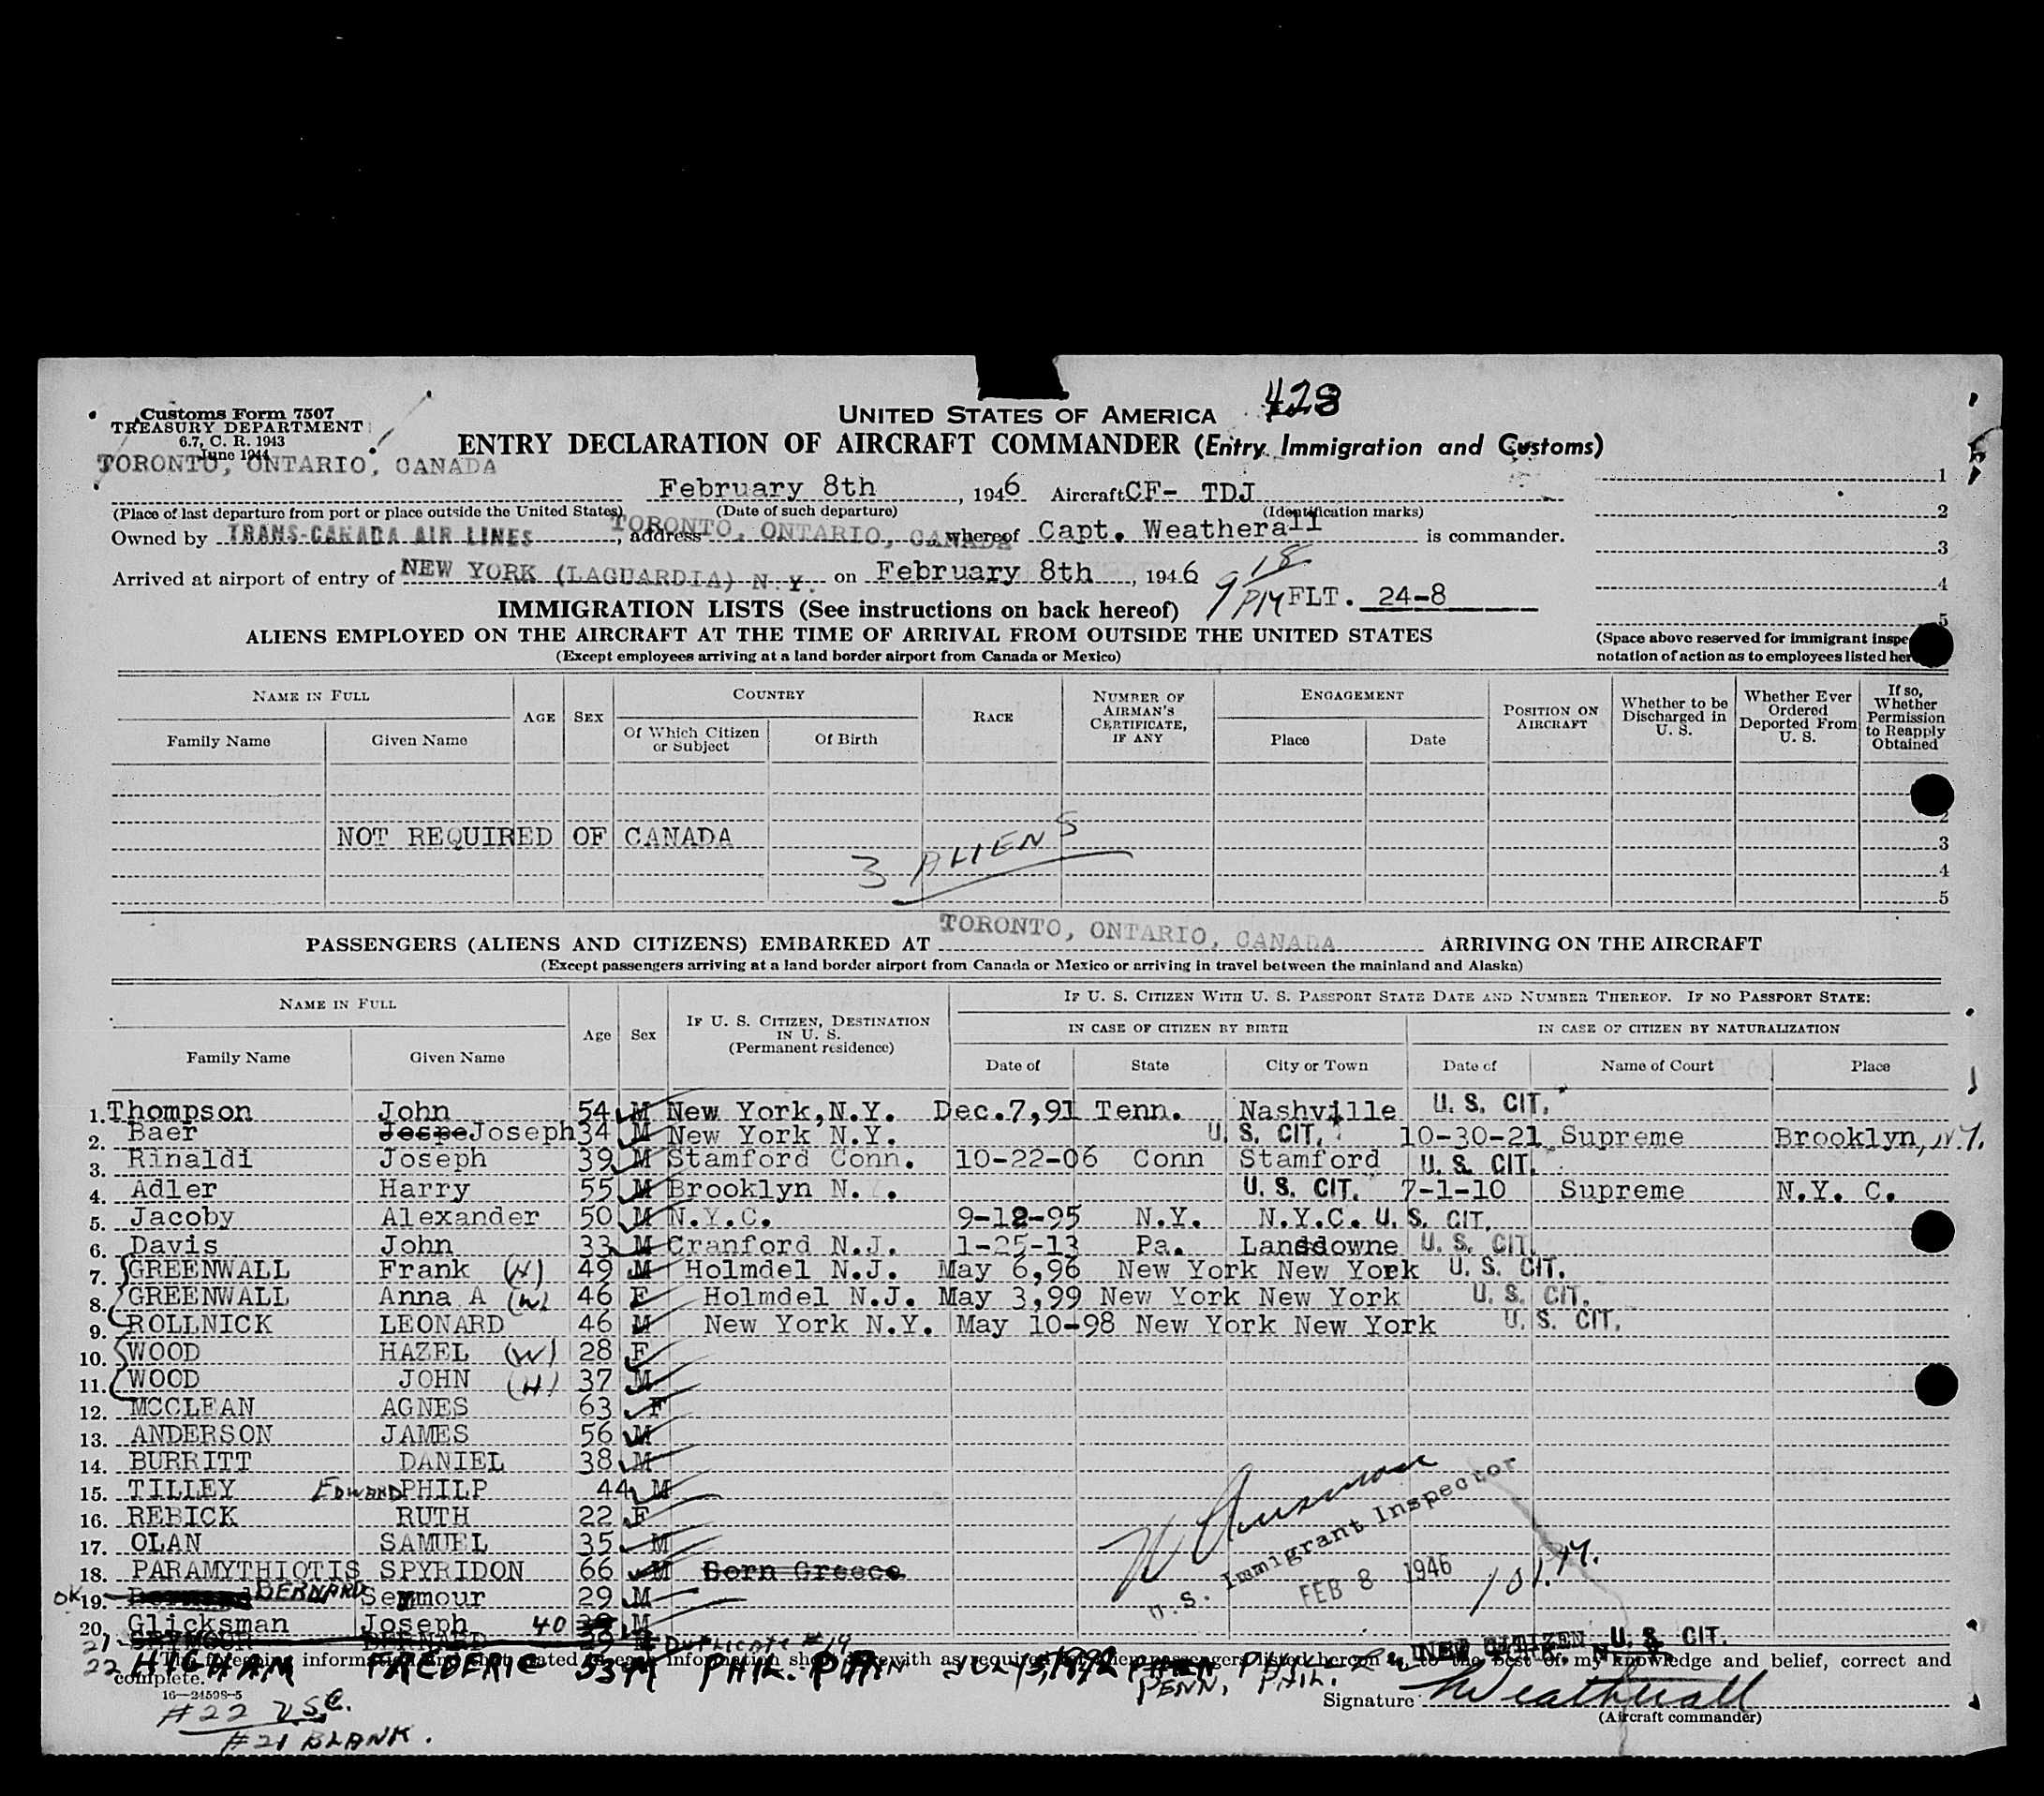 Customs Form 7507
TREASURY DEPARTMENT
6.7, C. R. 1943
June 1944
UNITED STATES OF AMERICA 428
ENTRY DECLARATION OF AIRCRAFT COMMANDER (Entry, Immigration and Customs)
TORONTO, ONTARIO, CANADA
February 8th, 1946 Aircraft CF- TDJ
(Place of last departure from port or place outside the United States) (Date of such departure) (Identification marks)
Owned by TRANS-CANADA AIR LINES, address TORONTO, ONTARIO, CANADA whereof Capt. Weatherall is commander.
Arrived at airport of entry of NEW YORK (LAGUARDIA) N.Y. on February 8th, 1946 9 18 PM FLT. 24-8
1
2
3
4
5
(Space above reserved for immigrant inspe
notation of action as to employees listed her
IMMIGRATION LISTS (See instructions on back hereof)
ALIENS EMPLOYED ON THE AIRCRAFT AT THE TIME OF ARRIVAL FROM OUTSIDE THE UNITED STATES
(Except employees arriving at a land border airport from Canada or Mexico)
NAME IN FULL AGE SEX COUNTRY RACE NUMBER OF AIRMAN'S CERTIFICATE, IF ANY ENGAGEMENT POSITION ON AIRCRAFT Whether to be Discharged in U. S. Whether Ever Ordered Deported From U. S. If so, Whether Permission to Reapply Obtained
Family Name Given Name Of Which Citizen or Subject Of Birth Place Date
2
NOT REQUIRED OF CANADA 3
3 ALIENS 4
5
PASSENGERS (ALIENS AND CITIZENS) EMBARKED AT TORONTO, ONTARIO, CANADA ARRIVING ON THE AIRCRAFT
(Except passengers arriving at a land border airport from Canada or Mexico or arriving in travel between the mainland and Alaska)
NAME IN FULL Age Sex IF U. S. CITIZEN, DESTINATION IN U. S. (Permanent residence) IF U. S. CITIZEN WITH U. S. PASSPORT STATE DATE AND NUMBER THEREOF. IF NO PASSPORT STATE:
IN CASE OF CITIZEN BY BIRTH IN CASE OF CITIZEN BY NATURALIZATION
Family Name Given Name Date of State City or Town Date of Name of Court Place
1. Thompson John 54 M New York, N.Y. Dec.7,91 Tenn. Nashville U. S. CIT.
2. Baer Jespe Joseph 34 M New York N.Y. U. S. CIT. 10-30-21 Supreme Brooklyn, N.Y.
3. Rinaldi Joseph 39 M Stamford Conn. 10-22-06 Conn Stamford U. S. CIT.
4. Adler Harry 55 M Brooklyn N. . U. S. CIT. 7-1-10 Supreme N.Y. C.
5. Jacoby Alexander 50 M N.Y.C. 9-12-95 N.Y. N.Y.C. U. S. CIT.
6. Davis John 33 M Cranford N.J. 1-25-13 Pa. Lansdowne U. S. CIT.
7. GREENWALL Frank (H) 49 M Holmdel N.J. May 6,96 New York New York U. S. CIT.
8. GREENWALL Anna A (W) 46 F Holmdel N.J. May 3,99 New York New York U. S. CIT.
9. ROLLNICK LEONARD 46 M New York N.Y. May 10-98 New York New York U. S. CIT.
10. WOOD HAZEL (W) 28 F
11. WOOD JOHN (H) 37 M
12. MCCLEAN AGNES 63 F
13. ANDERSON JAMES 56 M
14. BURRITT DANIEL 38 M
15. TILLEY EDWARD PHILP 44 M
16. REBICK RUTH 22 F
17. OLAN SAMUEL 35 M
18. PARAMYTHIOTIS SPYRIDON 66 M Born Greece
OK 19. BERNARD Seymour 29 M
20. Glicksman Joseph 40 39 M
21- SEYMOUR BERNARD 29 M DUPLICATE #19
U.S. Immigrant Inspector
FEB 8 1946
NEW YORK, N.Y. CITIZEN U. S. CIT.
The foregoing information and that stated in each information sheet herewith as required of them passengers listed hereon is, to the best of my knowledge and belief, correct and
complete.
22 HIGHAM FREDERIC 53 M PHIL. PENN JULY 3, 1892 PENN PHIL.
PENN, PHIL.
16—24598-5
Signature Weatherall
(Aircraft commander)
#22 U.S.C.
#21 BLANK.